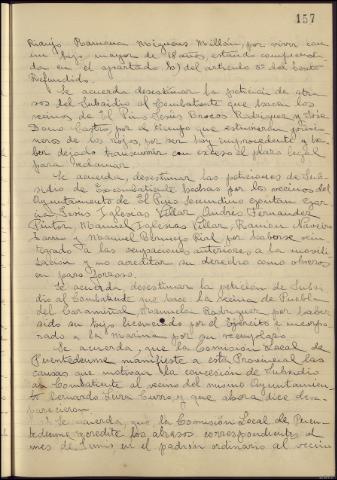 157
Ramona Miguens Millán, por vivir con
un hijo mayor de 18 años, estando comprendi-
da en el apartado b) del articulo 5º del Texto
Refundido.
Se acuerda desestimar la peticion de atra-
sos del Subsidio al Combatiente que hacen los
vecinos de El Pino Jesús Rodriguez y José
Castro, por el tiempo que estuvieron prisio-
neros de los rojos, por ser hoy improcedente y ha-
ber dejado transcurrir con exceso el plazo legal
para reclamar
Se acuerda, desestimar las peticiones de Sub-
sidio de Excombatiente hechas por los vecinos del
Ayuntamiento de El Pino
Jesús Iglesias Villar Andrés Fernandez
Pintor, Manuel Iglesias Villar, Ramon
y Manuel por haberse rein-
tegrado a las ocupaciones anteriores a la movili-
zacion y no acreditar su derecho como obreros
en paro forzoso.
Se acuerda desestimar la peticion de Subsi-
dio al Combatiente que hace la vecina de Puebla
del Caramiñal Manuela Rodriguez por haber
sido su hijo licenciado por el Ejército e incorpo-
rado a la Marina por su reemplazo.
Se acuerda, que la Comision Local de
Puentedeume manifieste a esta Provincial las
causas que motivaron la concesion de Subsidio
al Combatiente al vecino del mismo Ayuntamien-
to Bernardo y que ahora dice desa-
parecieron
Se acuerda, que la Comision Local de Puen-
tedeume acredite los atrasos correspondientes al
mes de Junio en el padrón ordinario al vecino